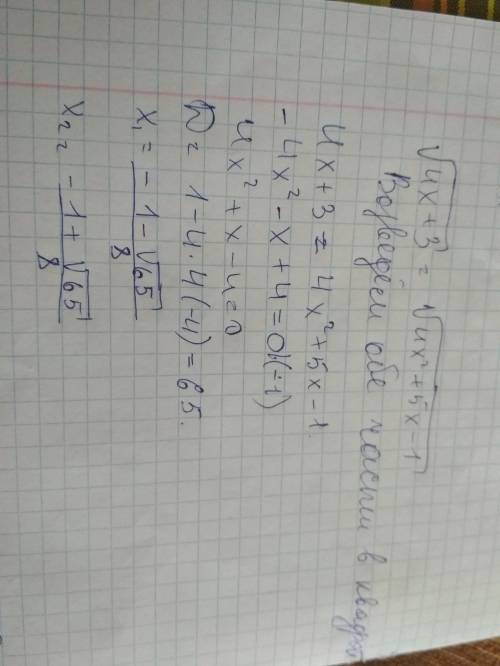 √4x+3 = √4x²+5x-1
Возведём обе части в квадрат
4x+3 = 4x²+5x-1.
-4x²-x+4=0 |(÷-1)
4x²+x-4=0
D= 1-4·4(-4)=65.
x₁= -1-√65/8
x₂= -1+√65/8